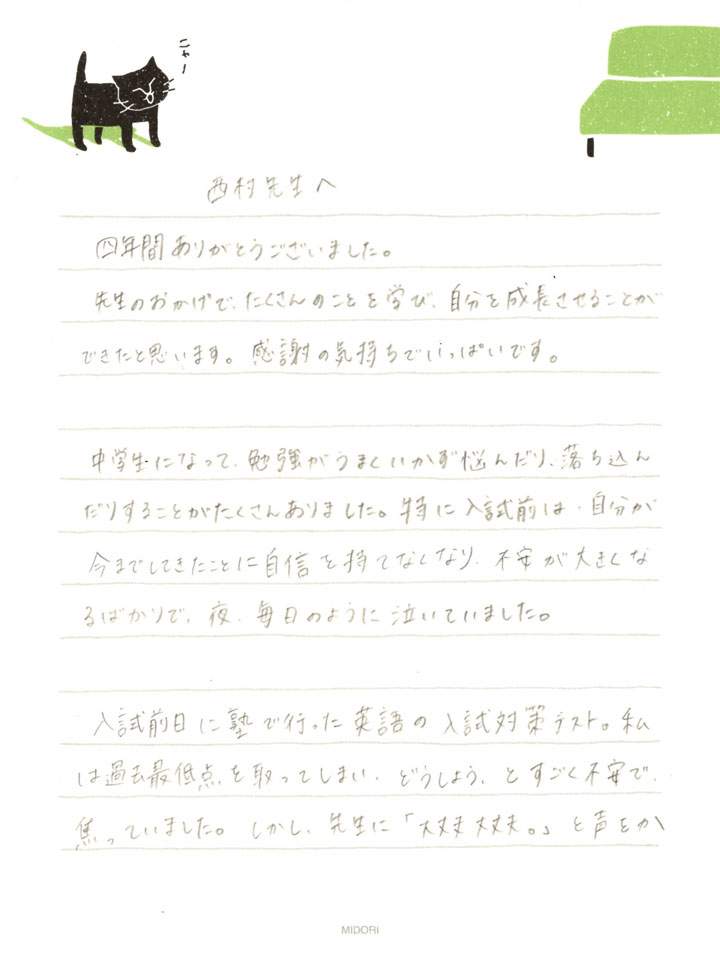 ニャー
西村先生へ
四年間ありがとうございました。
先生のおかげで、たくさんのことを学び、自分を成長させることが
できたと思います。感謝の気持ちでいっぱいです。
中学生になって、勉強がうまくいかず悩んだり、落ち込ん
だりすることがたくさんありました。特に入試前は、自分が
今までしてきたことに自信を持てなくなり、不安が大きくな
るばかりで、夜、毎日のように泣いていました。
入試前日に塾で行った英語の入試対策テスト。私
は過去最低点を取ってしまい、どうしよう、とすごく不安で、
焦っていました。しかし、先生に「大丈夫大丈夫。」と声をか
MIDORI